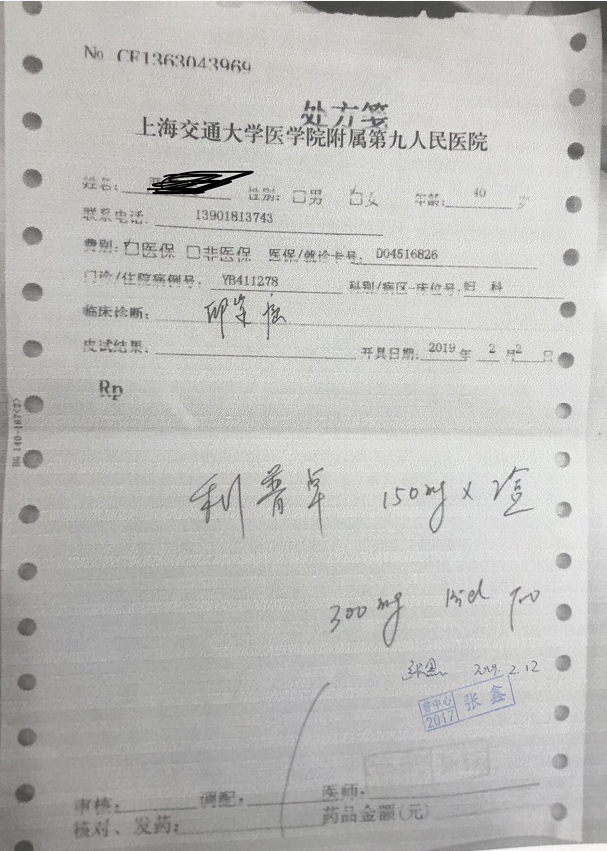 № CF1363043969
处方笺
上海交通大学医学院附属第九人民医院
姓名: 性别: □男 □女 年龄: 40 岁
联系电话: 13901813743
费别: □医保 □非医保 医保/就诊卡号: D04516826
门诊/住院病例号: YB411278 科别/病区-床位号: 妇 科
临床诊断:
皮试结果: 开具日期: 2019 年 2 月 2 日
Rp
BG 140-167(2)
利普卓 150mg x 2盒
300mg Bid po
2019.2.12
2017 张 鑫
审核: 调配: 医师:
核对、发药: 药品金额(元)